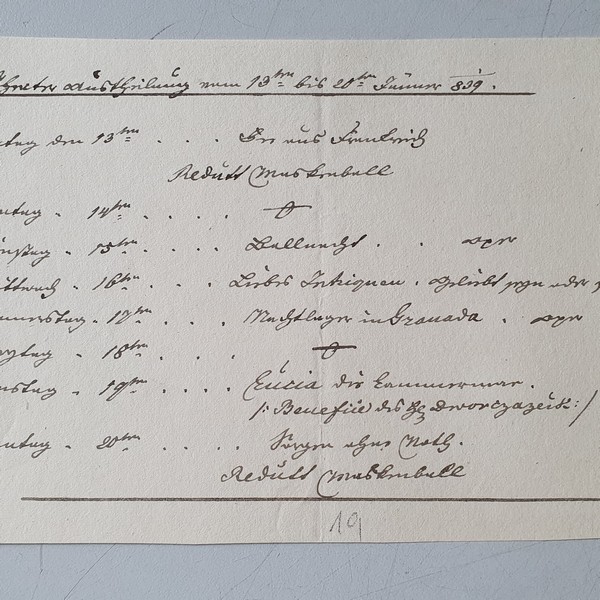 Theater Austheilung vom 13ten bis 20ten Jänner 839.
ntag den 13ten . . . aus Frankreich
Redutt Maskenball
ntag " 14ten . . . .
nstag " 15ten . . . . Ballnacht . . Oper
ittwoch " 16ten . . . Liebes Intriguen . geliebt seyn oder
nnerstag " 17ten . . . Nachtlager in Granada . Oper
eytag " 18ten . . .
mstag " 19ten . . . . Lucia die Lammermoor.
/: Benefice des :/
ntag " 20ten . . . . Sorgen ohne Noth.
Redutt Maskenball
19